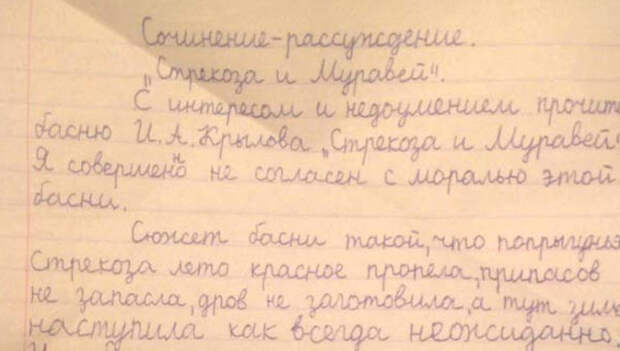 Сочинение-рассуждение.
„Стрекоза и Муравей".
С интересом и недоумением прочите
басню И.А.Крылова „Стрекоза и Муравей"
Я совершенно не согласен с моралью этой
басни.
Сюжет басни такой, что попрыгунья
Стрекоза лето красное пропела, припасов
не запасла, дров не заготовила, а тут зима
наступила как всегда неожиданно.